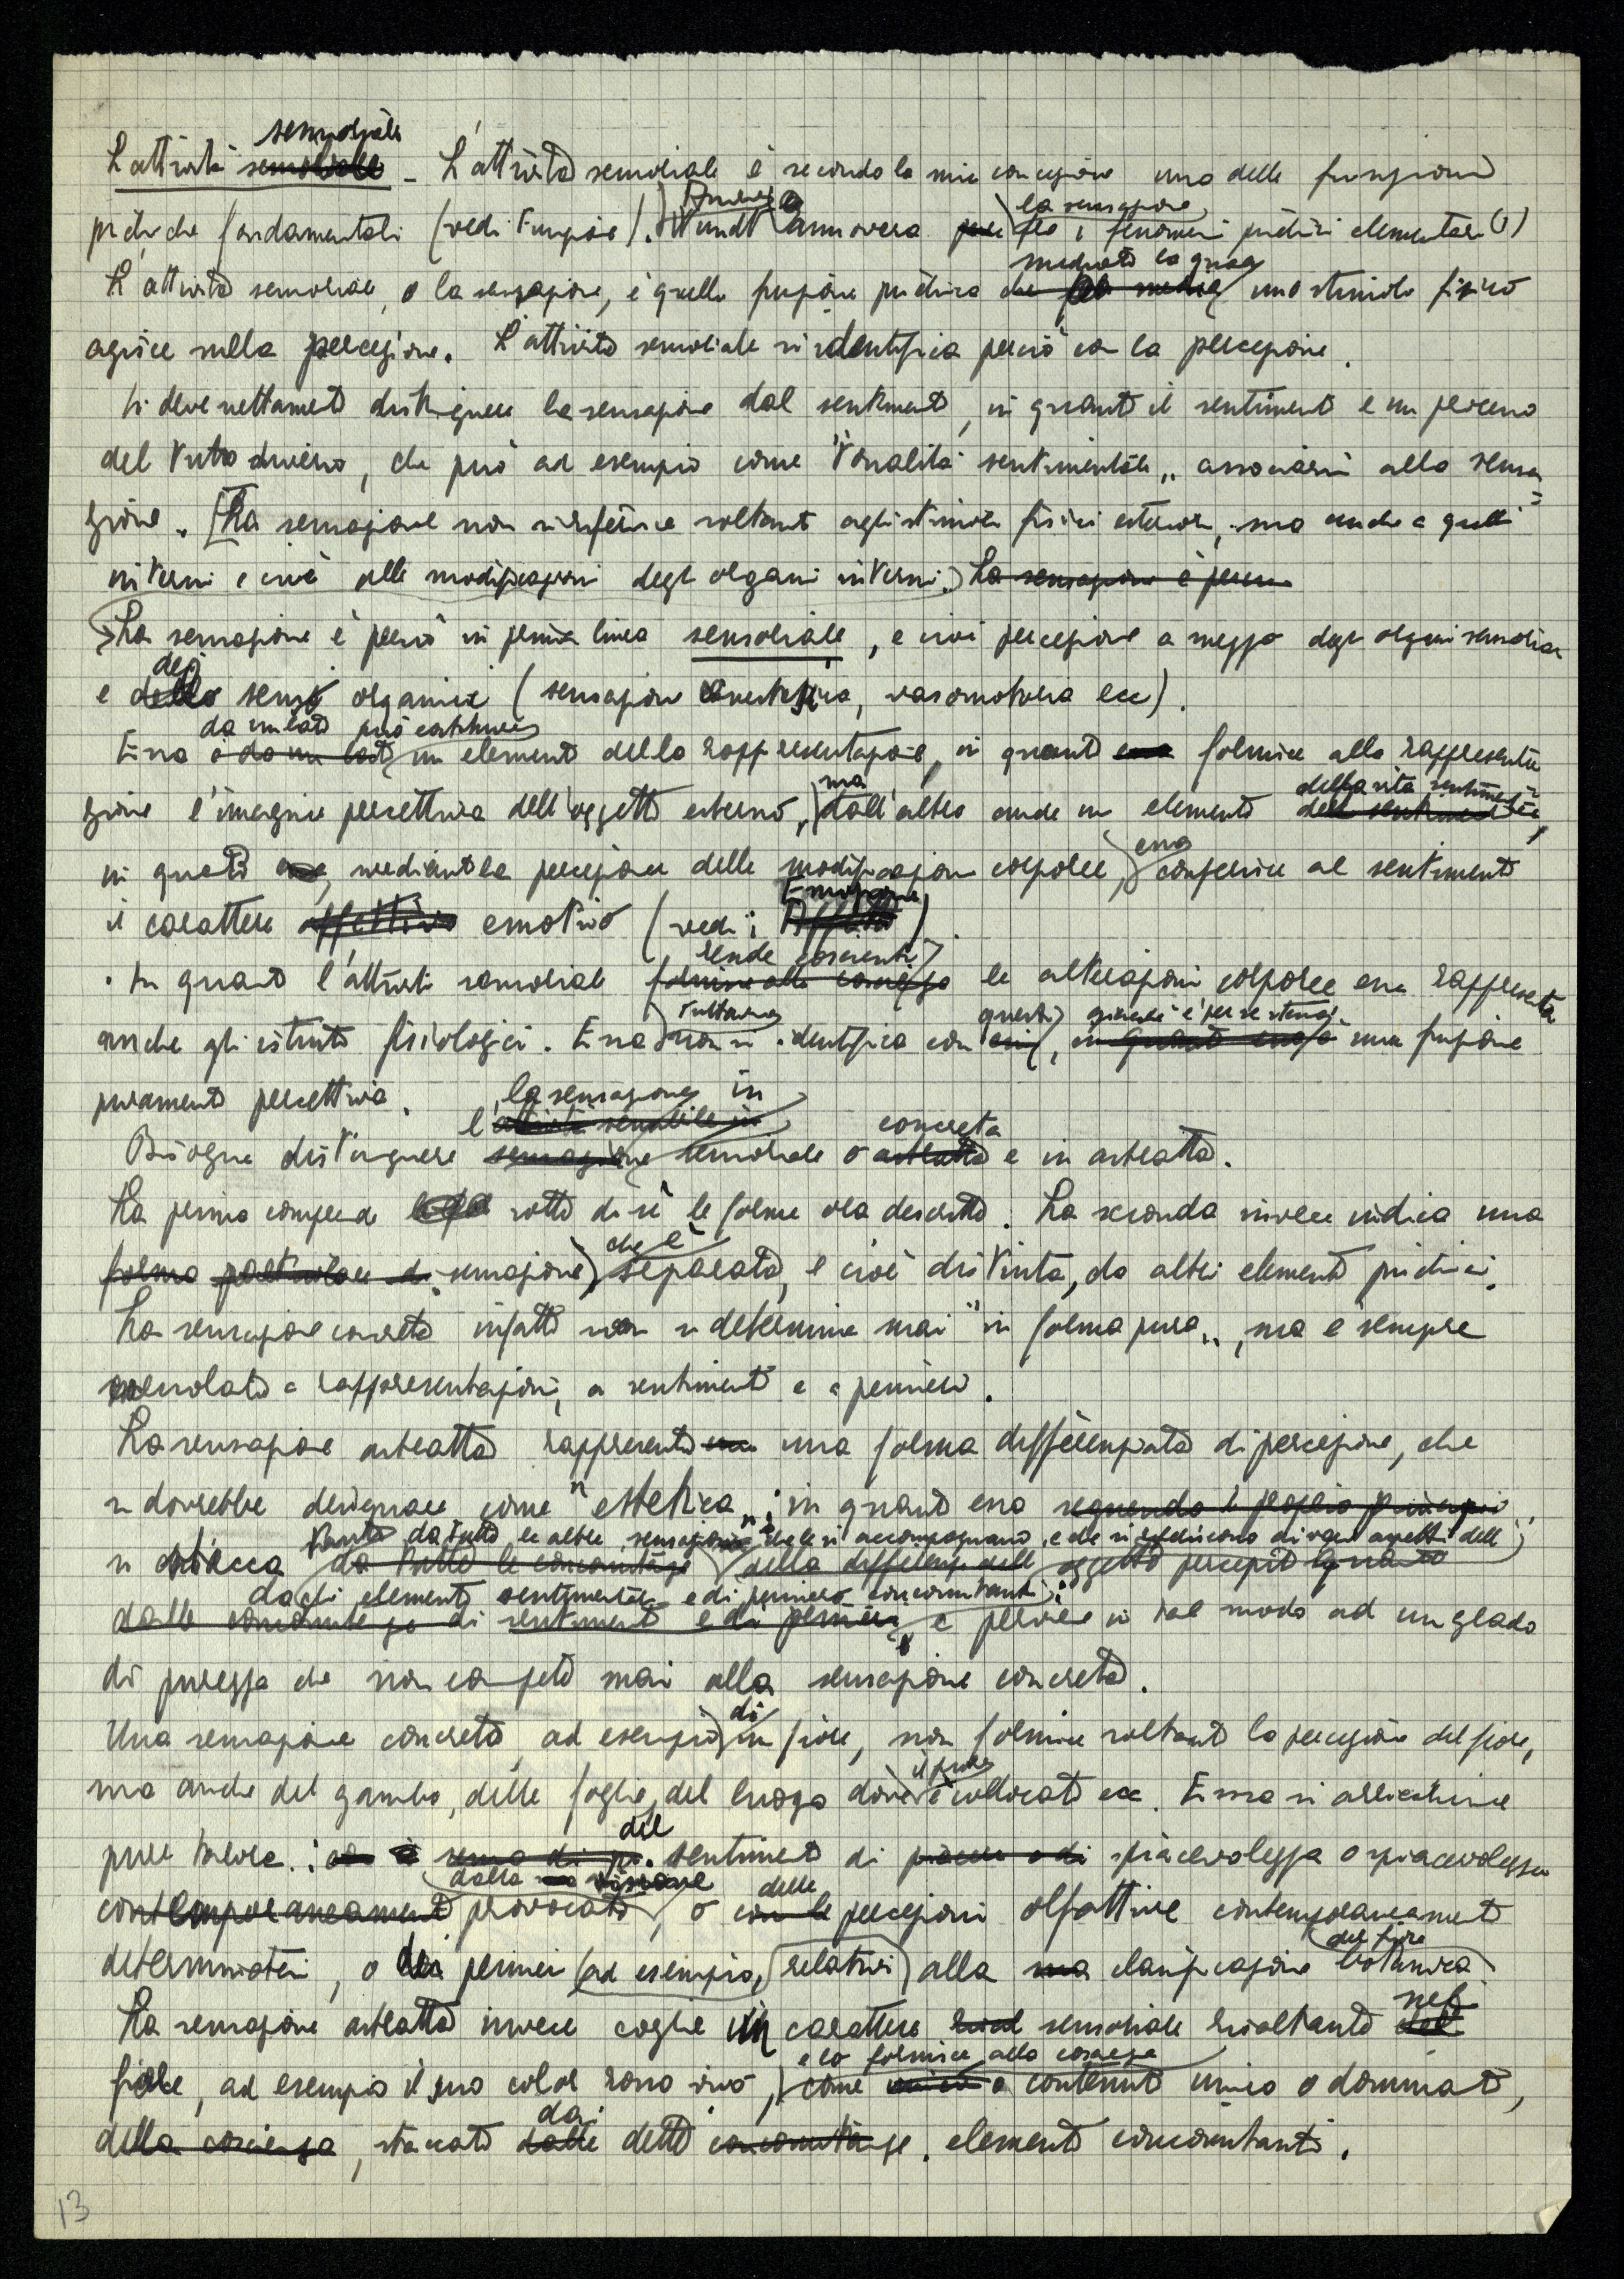 sensoriale
L'attività sensoriale - L'attività sensoriale è secondo la mia concezione una delle funzioni
psichiche fondamentali (vedi Funzione). Wundt annovera la sensazione fra i fenomeni psichici elementari (1)
L'attività sensoriale, o la sensazione, è quella funzione psichica mediante la quale uno stimolo fisico
agisce sulla percezione. L'attività sensoriale si identifica perciò con la percezione.
Si deve nettamente distinguere la sensazione dal sentimento, in quanto il sentimento è un processo
del tutto diverso, che può ad esempio come "tonalità sentimentale" associarsi alla sensa=
zione. [La sensazione non si riferisce soltanto agli stimoli fisici esteriori, ma anche a quelli
interni e cioè alle modificazioni degli organi interni.) La sensazione è perciò
La sensazione è perciò in prima linea sensoriale, e cioè percezione a mezzo degli organi sensoriali
e degli sensi organici (sensazione cinestesica, vasomotoria ecc).
Essa da un lato può costituire un elemento della rappresentazione, in quanto fornisce alla rappresenta=
zione l'imagine percettiva dell'oggetto esterno, ma dall'altro anche un elemento della vita sentimentale,
in quanto, mediante la percezione delle modificazioni corporee, essa conferisce al sentimento
il carattere affettivo emotivo (vedi: Emozione).
In quanto l'attività sensoriale rende coscienti le alterazioni corporee essa rappresenta
anche gli istinti fisiologici. Essa tuttavia non si identifica con questi, giacché è per se stessa una funzione
puramente percettiva.
la sensazione in
l'attività sensibile in
Bisogna distinguere sensazione sensoriale o concreta e in astratta.
La prima comprende sotto di sé le forme ora descritte. La seconda invece indica una
forma particolare di sensazione che è separata, e cioè distinta, da altri elementi psichici.
La sensazione concreta infatti non si determina mai "in forma pura", ma è sempre
mescolata a rappresentazioni, a sentimenti e a pensieri.
La sensazione astratta rappresenta una forma differenziata di percezione, che
si dovrebbe designare come "estetica"; in quanto essa seguendo il proprio principio
si distacca tanto da tutte le altre sensazioni che le si accompagnano, e che si riferiscono ai vari aspetti dell'
da tutte le concomitanze della differenze dell' oggetto percepito quanto
dagli elementi sentimentali e di pensiero concomitanti;
dalle concomitanze di sentimento e di pensiero, e perviene in tal modo ad un grado
di purezza che non compete mai alla sensazione concreta.
Una sensazione concreta, ad esempio di un fiore, non fornisce soltanto la percezione del fiore,
ma anche del gambo, delle foglie, del luogo dove il fiore è collocato ecc. Essa si arricchisce
pure talora: del sentimento di piacere o di piacevolezza o spiacevolezza
contemporaneamente provocato dalla visione, o delle percezioni olfattive contemporaneamente
determinatesi, o dei pensieri (ad esempio, relativi) alla classificazione botanica del fiore
La sensazione astratta invece coglie un carattere sensoriale risaltante nel
fiore, ad esempio il suo color rosso vivo, e lo fornisce alla coscienza come contenuto unico o dominante,
della coscienza, staccato dai detti concomitanze elementi concomitanti.
13